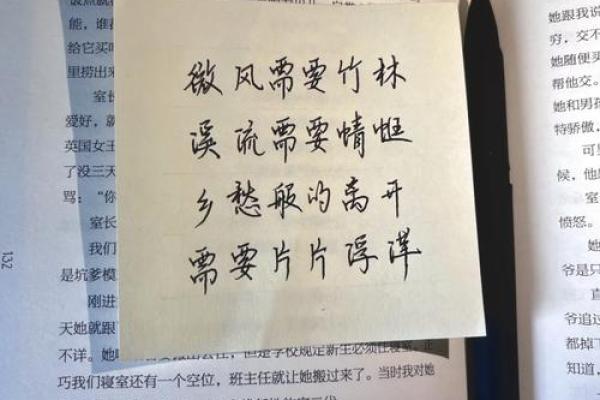 微风需要竹林
溪流需要蜻蜓
乡愁般的离开
需要片片浮萍
给它买
里捞出来
室长
爱好，就
英国女王
了没三天
骂：“你
室长
我们
132
是坑爹模
刚进
天她就跟
不详。她
但是学校规定新生必须住寝室
巧我们寝室还有一个空位，班主任就让她搬过来了。当时我对她
她跟我说
穷，交不
她随便买
帮他交。
她和男孩
特骄傲，
候，他
室
愤怒。
爷是只
直
爷追过
都掉下
知道，